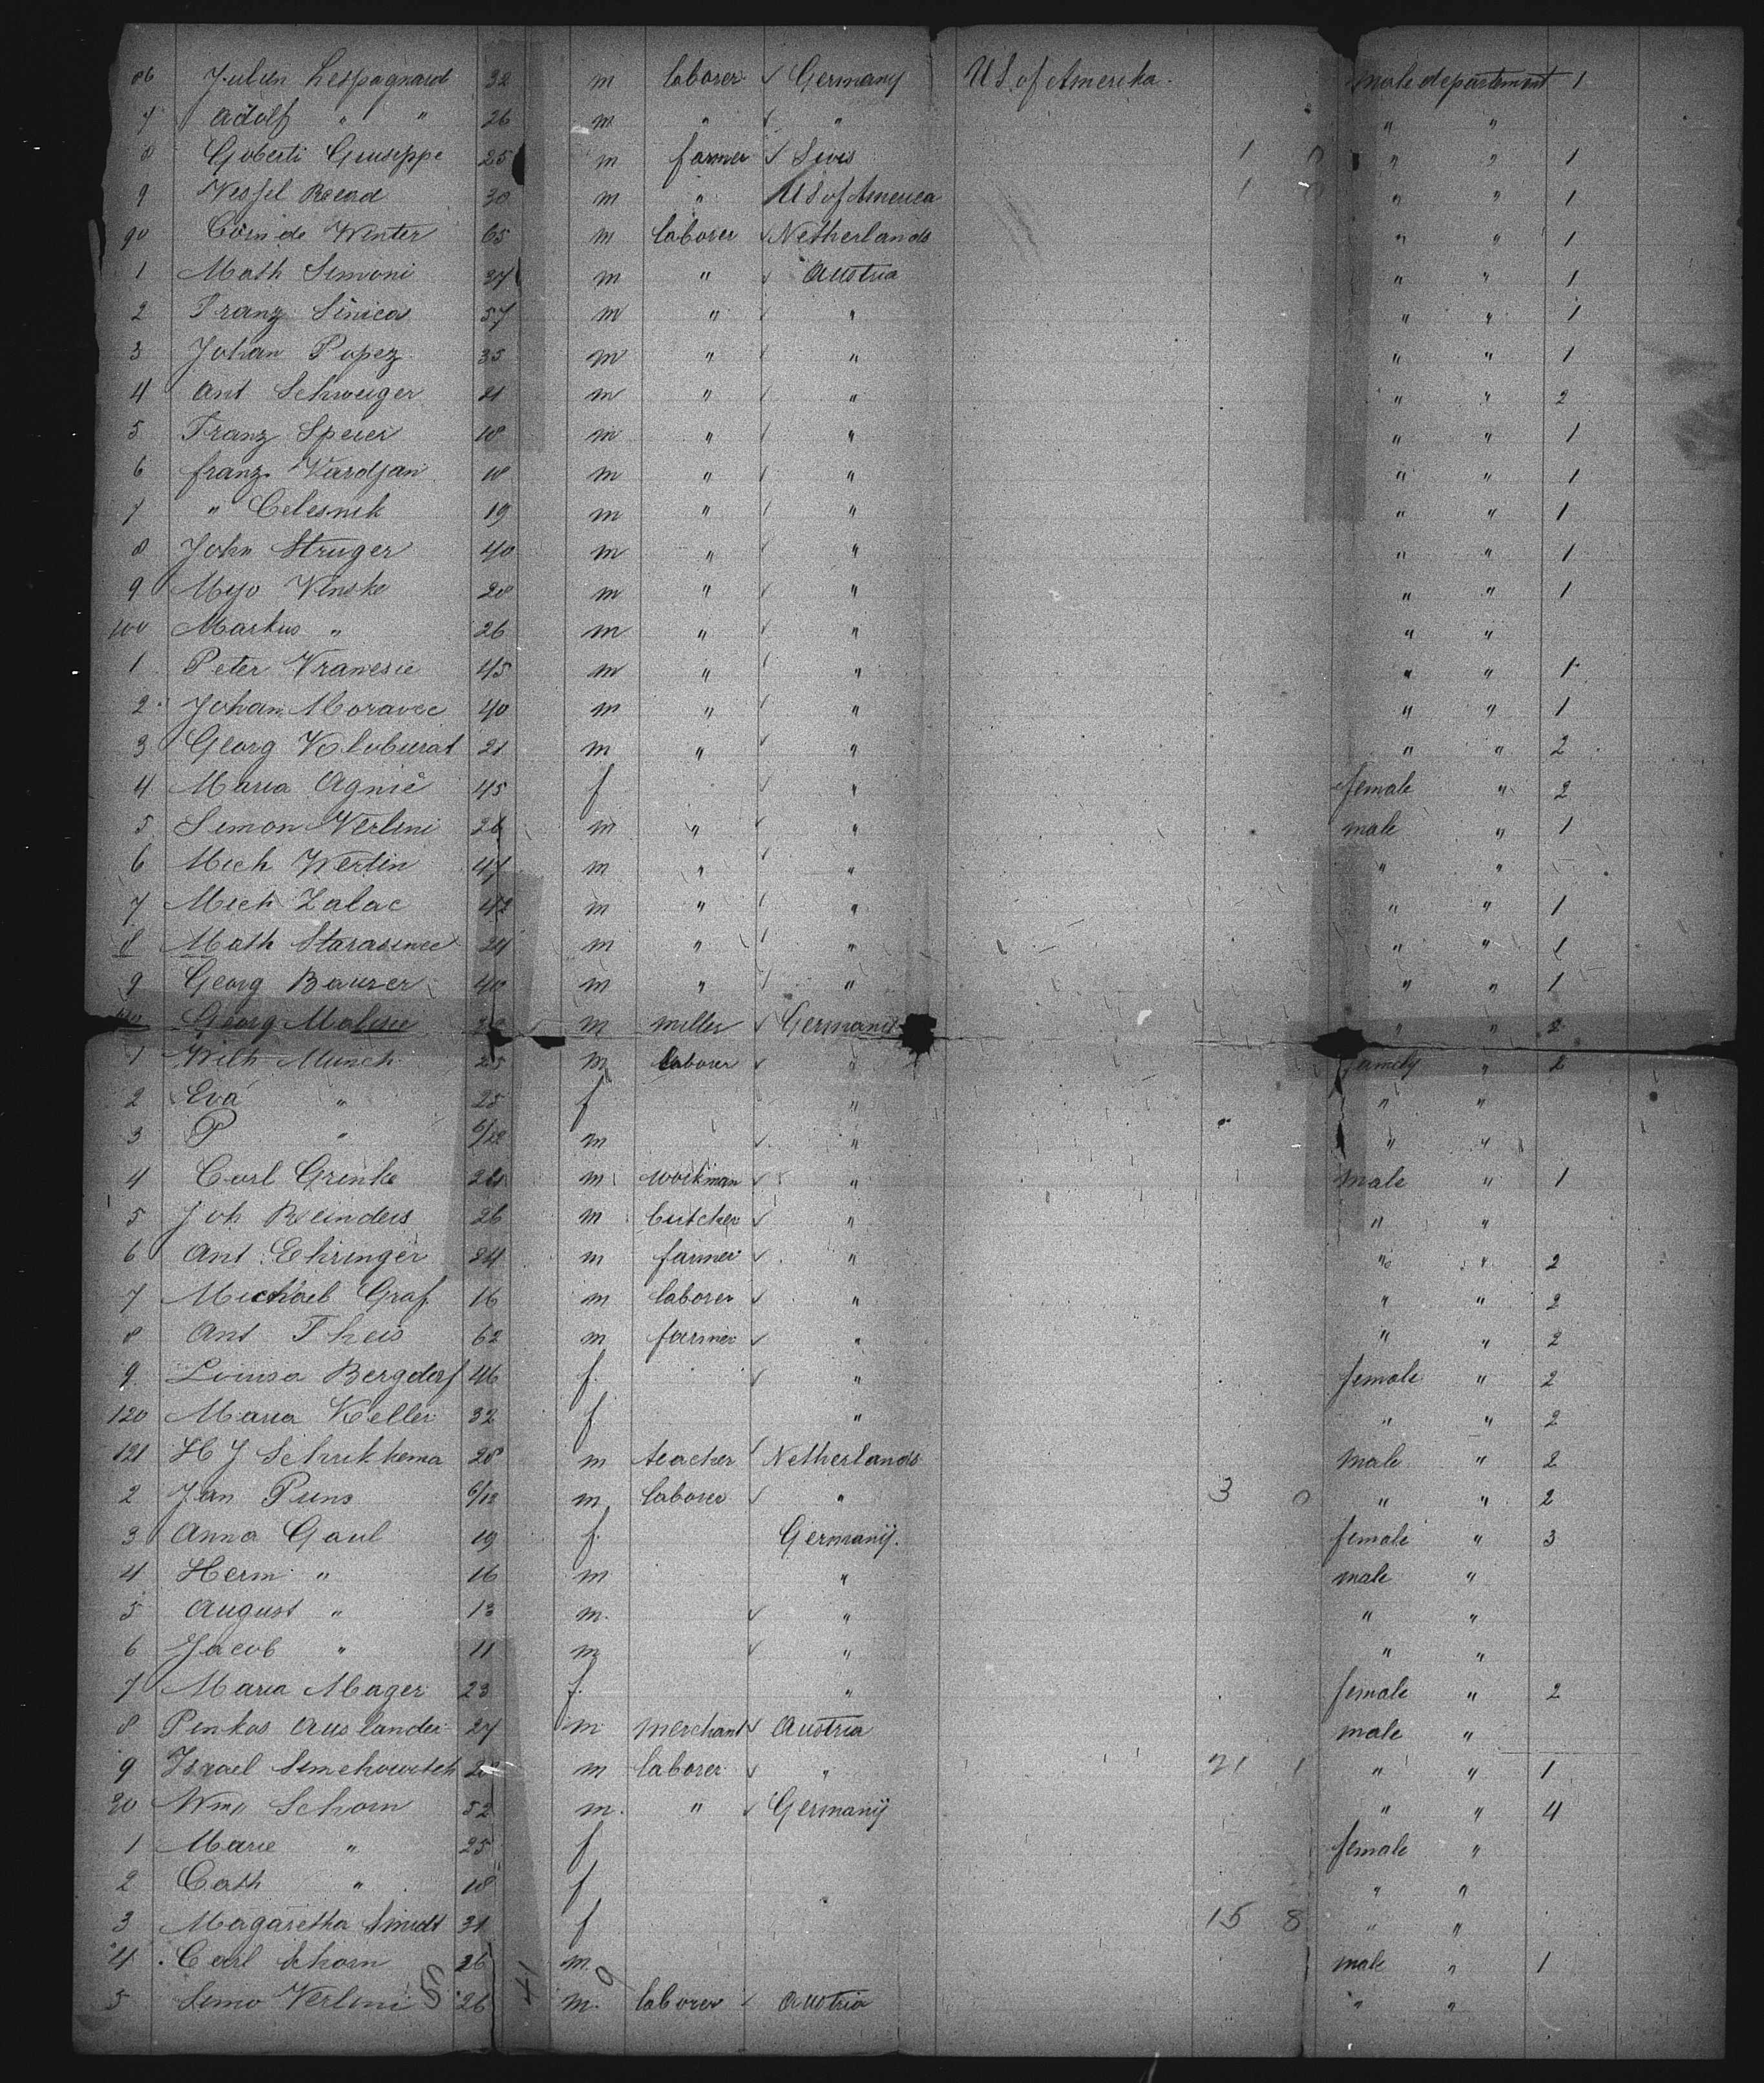 86 Julien Lespagnard 32 m laborer ✓ Germany US of Amerika. male departement 1
7 Adolf " " 26 m " ✓ " " "
8 Goberti Giuseppe 25 m farmer ✓ Swis 1 0 " " 1
9 Wessel 30 m " US of America 1 " " 1
90 de Winter 65 m laborer ✓ Netherlands " " 1
1 Math Simoni 37 m " ✓ Austria " " 1
2 Franz Sinica 57 m " ✓ " " " 1
3 Johan Popez 35 m " ✓ " " " 1
4 Ant Schweiger 21 m " ✓ " " " 2
5 Franz Speier 18 m " ✓ " " " 1
6 franz Vardjan 18 m " ✓ " " " 1
7 " Celesnik 19 m " ✓ " " " 1
8 John Struger 40 m " ✓ " " " 1
9 Myo Vinske 28 m " ✓ " " " 1
100 Markus " 26 m " ✓ " " "
1 Peter Vranesic 45 m " ✓ " " " 1
2 Johan Moravec 40 m " ✓ " " " 1
3 Georg Kloburat 21 m " ✓ " " " 2
4 Maria Agnic 45 f ✓ " female " 2
5 Simon Verlini 26 m " ✓ " male " 1
6 Mich Wertin 47 m " ✓ " " "
7 Mich Zalac 42 m " ✓ " " " 1
8 Math Starasinec 24 m " ✓ " " " 1
9 Georg Bauzer 40 m " ✓ " " " 1
110 Georg Malesic m miller ✓ Germany " " 2
1 Wilh Munch 25 m laborer ✓ " family " 2
2 Eva " 25 f " " "
3 P " 6/12 m ✓ " " "
4 Carl Grinke 24 m workman ✓ " male " 1
5 Joh Reinders 26 m butcher ✓ " " "
6 Ant Ehringer 24 m farmer ✓ " " " 2
7 Michael Graf 16 m laborer ✓ " " " 2
8 Ant Theis 62 m farmer ✓ " " " 2
9 Louisa Bergdorf 46 f ✓ " female " 2
120 Maria Keller 32 f " " " 2
121 H J Schrikkema 28 m teacher ✓ Netherlands male " 2
2 Jan Puns 6/12 m laborer ✓ " 3 0 " " 2
3 Anna Gaul 19 f. Germanÿ. female " 3
4 Herm " 16 m " male "
5 August " 13 m. ✓ " " "
6 Jacob " 11 m ✓ " " "
7 Maria Mager 23 f. " female " 2
8 Pinkas Auslander 27 m merchant ✓ Austria male "
9 Israel Simchowitch m laborer ✓ " 21 1 " " 1
30 Wm Schorn 52 m. " ✓ Germanÿ " " 4
1 Marie " 25 f female "
2 Cath " 18 f " "
3 Magaretha Smidt 31 f 15 8 " "
4 Carl Schorn 26 m. male " 1
5 Simo Verlini 8 26 41 m. 0 laborer ✓ Austria " "